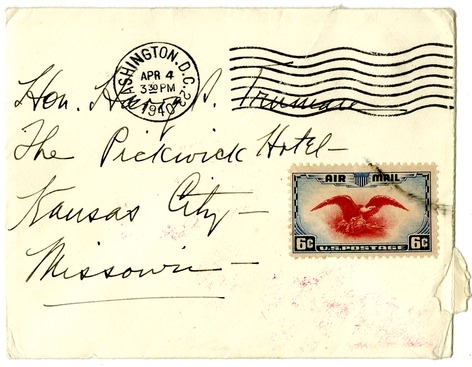 WASHINGTON, D.C. 2
APR 4
3 30 PM
1940
Hon. Harry S. Truman
The Pickwick Hotel—
Kansas City—
Missouri—
AIR MAIL
6¢ U.S. POSTAGE 6¢